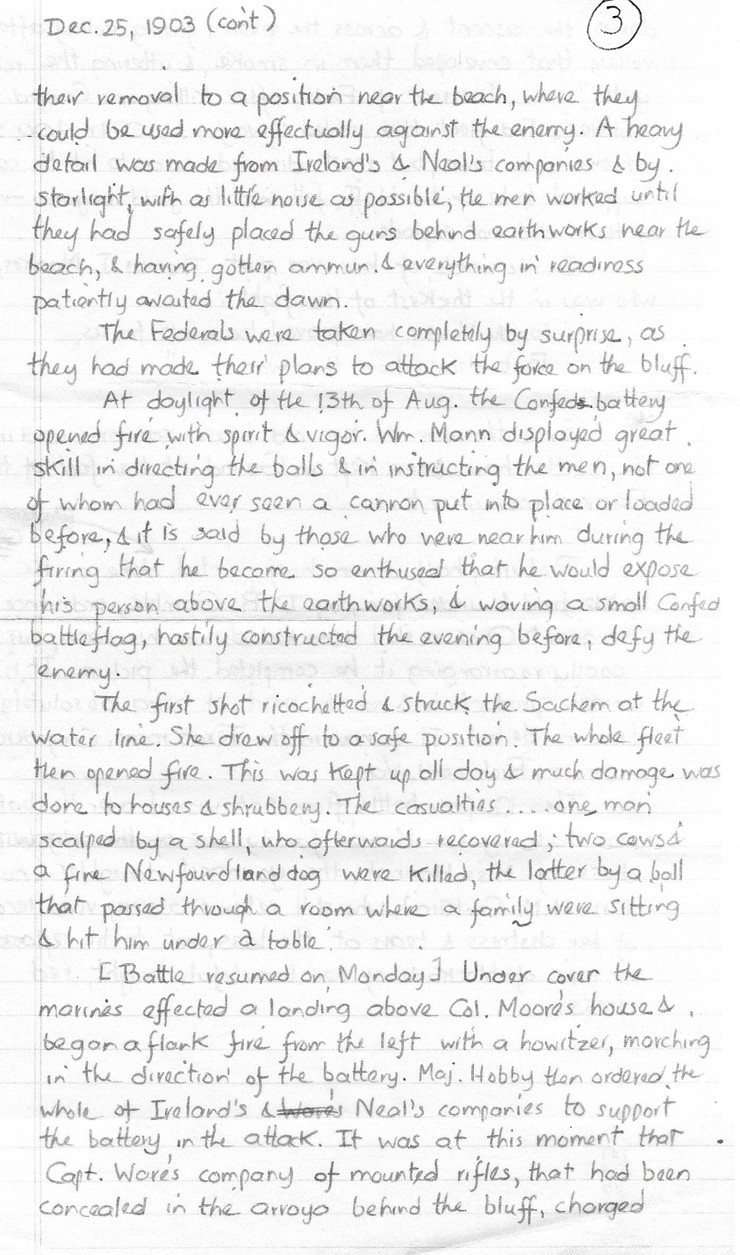 Dec. 25, 1903 (cont)
3
their removal to a position near the beach, where they
could be used more effectually against the enemy. A heavy
detail was made from Ireland's & Neal's companies & by
starlight, with as little noise as possible, the men worked until
they had safely placed the guns behind earthworks near the
beach, & having gotten ammun. & everything in readiness
patiently awaited the dawn.
The Federals were taken completely by surprise, as
they had made their plans to attack the force on the bluff.
At daylight of the 13th of Aug. the Confeds battery
opened fire with spirit & vigor. Wm. Mann displayed great
skill in directing the balls & in instructing the men, not one
of whom had ever seen a cannon put into place or loaded
before, & it is said by those who were near him during the
firing that he became so enthused that he would expose
his person above the earthworks, & waving a small Confed
battleflag, hastily constructed the evening before, defy the
enemy.
The first shot ricochetted & struck the Sachem at the
water line. She drew off to a safe position. The whole fleet
then opened fire. This was kept up all day & much damage was
done to houses & shrubbery. The casualties.....one man
scalped by a shell, who afterwards recovered; two cows &
a fine Newfoundland dog were killed, the latter by a ball
that passed through a room where a family were sitting
& hit him under a table.
[Battle resumed on Monday] Under cover the
marines effected a landing above Col. Moore's house &
began a flank fire from the left with a howitzer, marching
in the direction of the battery. Maj. Hobby then ordered the
whole of Ireland's & Wares Neal's companies to support
the battery in the attack. It was at this moment that
Capt. Ware's company of mounted rifles, that had been
concealed in the arroyo behind the bluff, charged